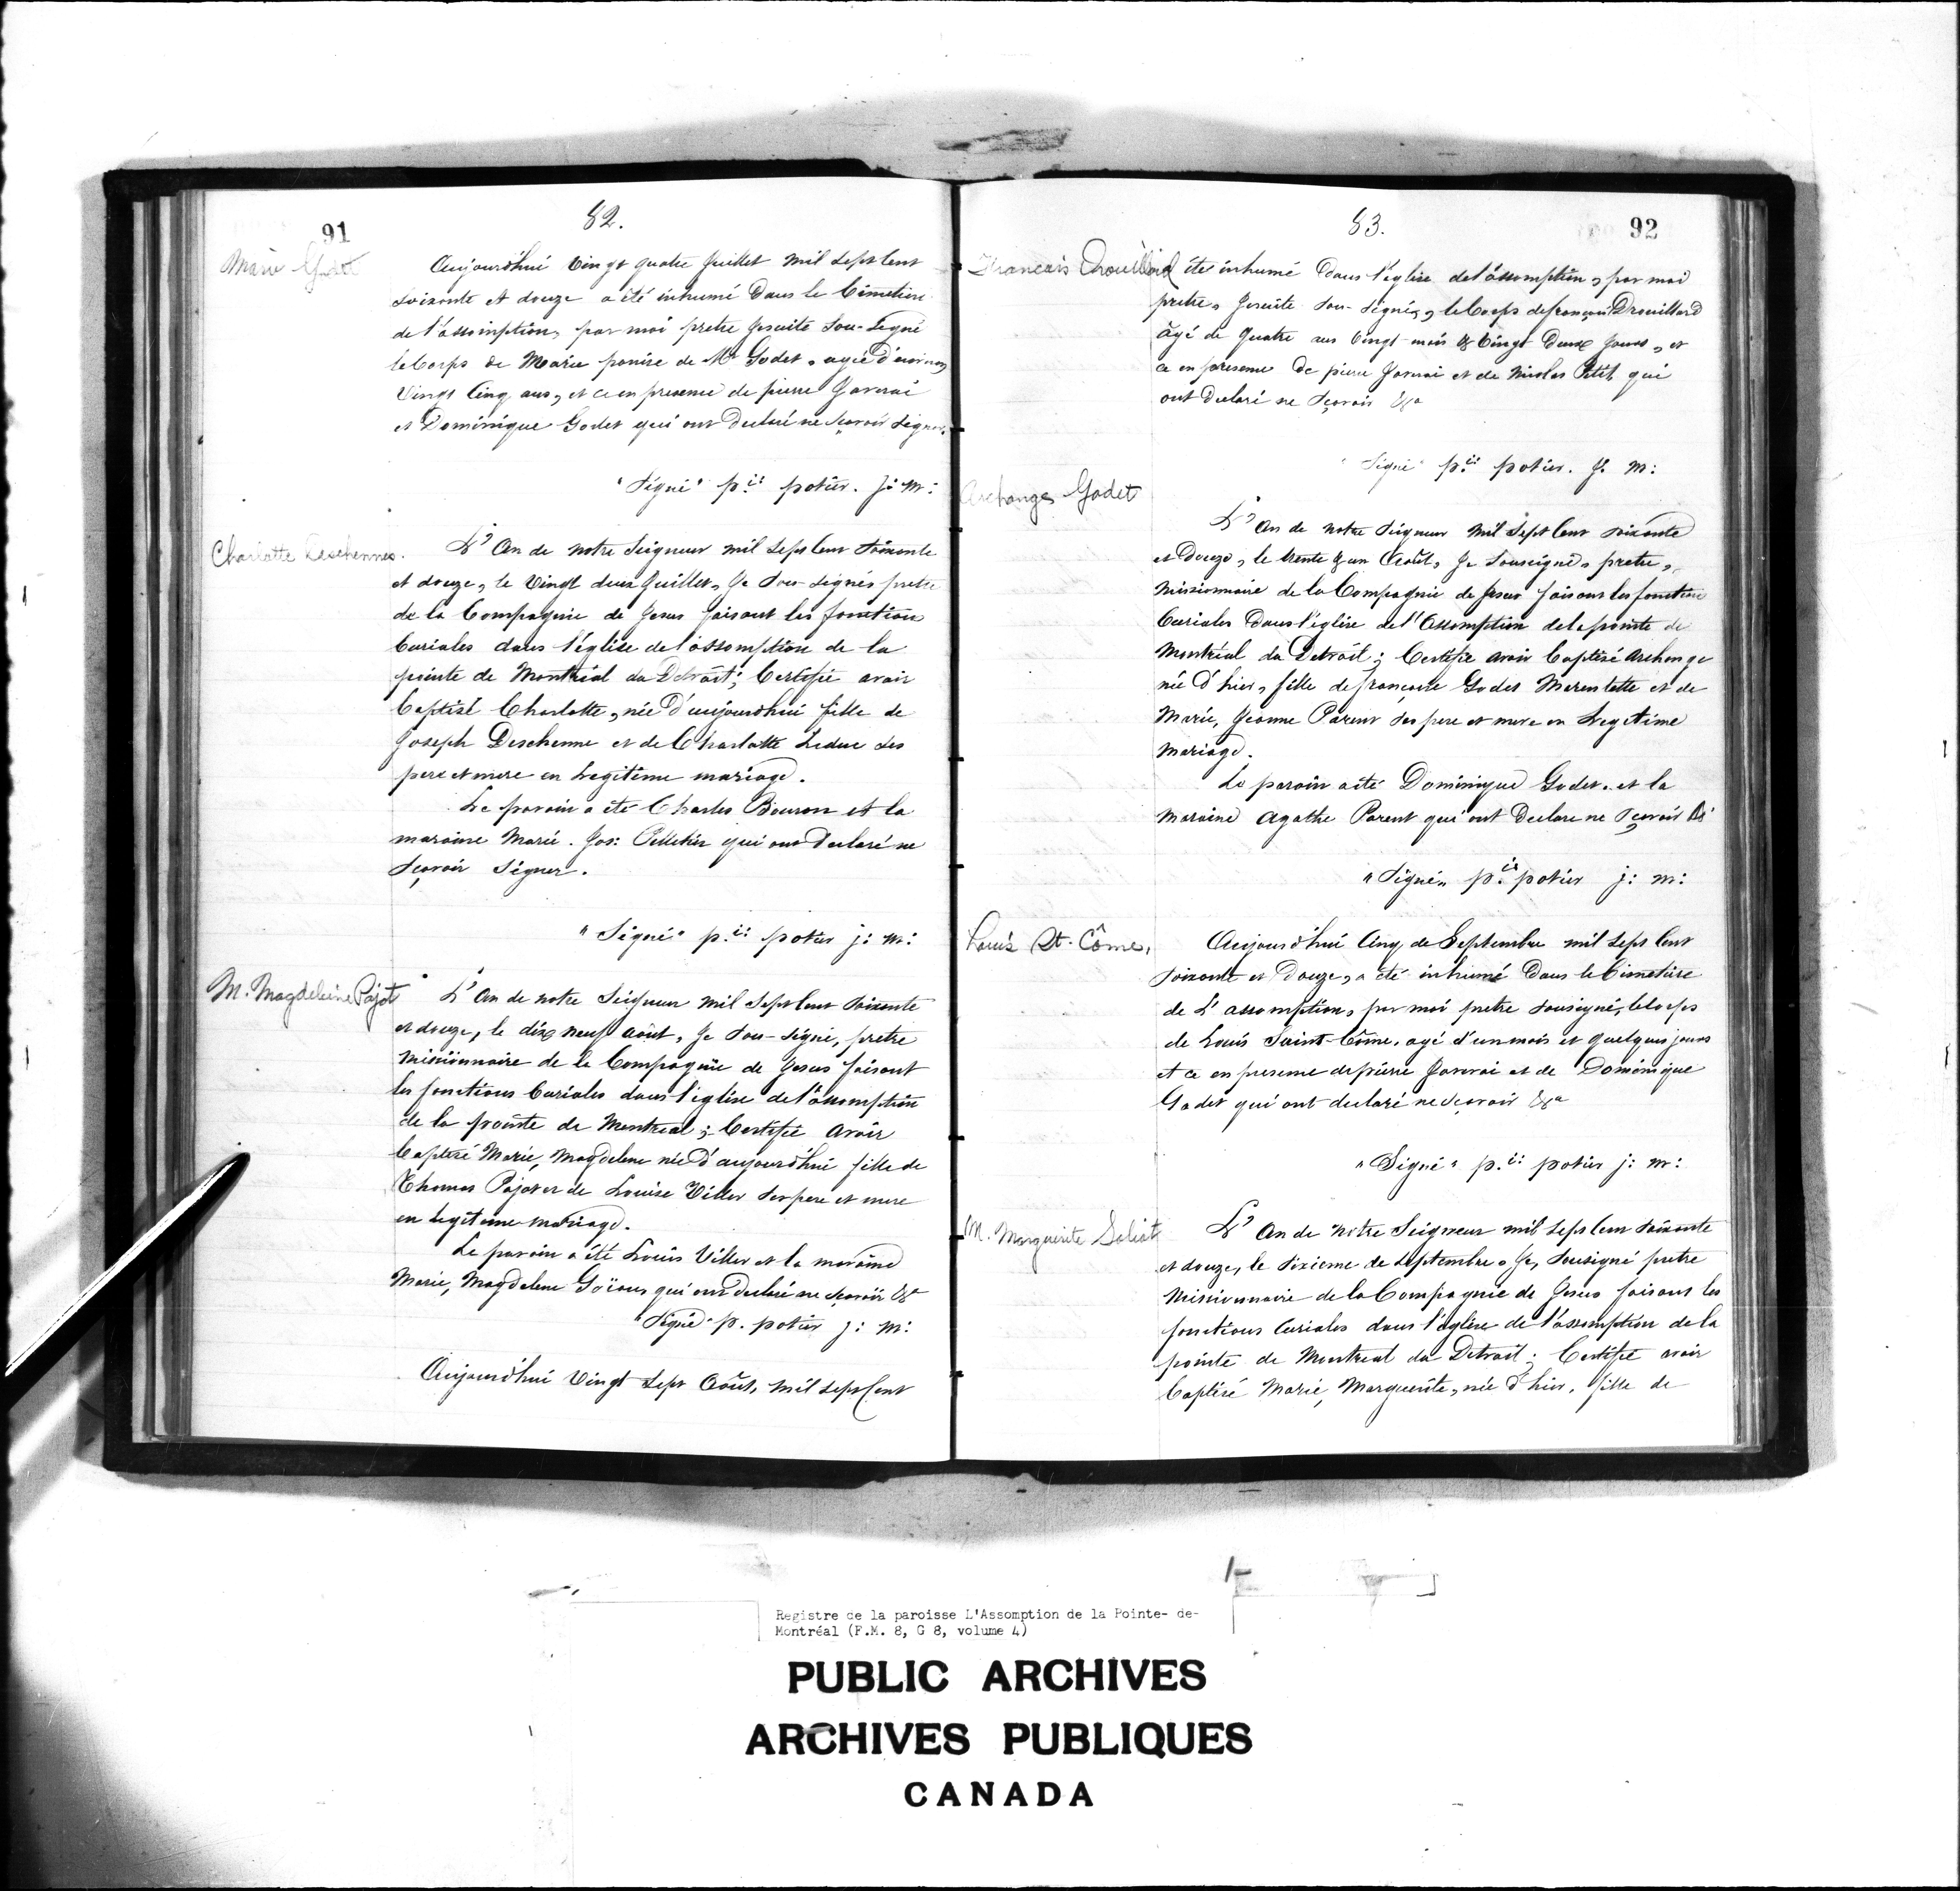 91
82.
Marie Godet
Aujourd'hui Vingt quatre Juillet mil Sept Cent
soixante et douze a été inhumé Dans le Cimetiere
de l'assomption, par moi pretre Jesuite Sou-Signé
le Corps de Marie panise de Mr Godet, agée d'environ
Vingt Cinq ans, et ce en presence de pierre Javerai
et Dominique Godet qui ont Declaré ne Sçavoir Signer.
"Signé" p.re potier. J: m:
Charlotte Deschennes.
L'An de notre Seigneur mil Sept Cent Soixante
et douze, le Vingt deux Juillet, Je Sou-Signés pretre
de la Compagnie de Jesus faisant les fonction
Curiales dans l'église de l'assomption de la
pointe de Montréal du Détroit; Certifie avoir
baptisé Charlotte, née D'aujourdhui fille de
Joseph Deschenne et de Charlotte Leduc ses
pere et mere en Legitime mariage.
Le parain a été Charles Bouron et la
maraine Marie. Jos: Pelletier qui ont Declaré ne
Sçavoir Signer.
"Signé" p.re potier j: m:
M. Magdeleine Pajot
L'An de notre Seigneur mil Sept Cent Soixante
et douze, le dix neuf août, Je Sou-Signé, pretre
missionnaire de la Compagnie de Jesus faisant
les fonctions Curiales dans l'église de l'assomption
de la pointe de Montreal; Certifie avoir
baptisé Marie, Magdelene née D'aujourdhui fille de
Thomas Pajot et de Louise Viller ses pere et mere
en legitime mariage.
Le parain a été Louis Viller et la maraine
Marie, Magdelene Goïau qui ont declaré ne sçavoir &a
"Signé" p. potier j: m:
Aujourd'hui Vingt Sept Août, mil Sept Cent
83.
92
Francais Drouillard
été inhumé Dans l'église de l'assomption, par moi
pretre, Jesuite Sou-Signés, le Corps de françois Drouillard
âgé de Quatre ans Vingt mois & Vingt Deux Jours, et
ce en presence De pierre Javerai et de Nicolas Petit, qui
ont Declaré ne Sçavoir &a
"Signé" p.re potier. J. m:
Archange Godet
L'An de notre Seigneur mil Sept Cent soixante
et Douze, le trente & un Août, Je Sousigné, pretre,
Missionnaire de la Compagnie de Jesus faisant les fonctions
Curiales Dans l'église de l'Assomption de la pointe de
Montréal du Detroit; Certifie avoir baptisé Archange
née D'hier, fille de françois Godet Marentette et de
Marie, Jeanne Parent ses pere et mere en Legitime
Mariage.
Le parain a été Dominique Godet. et la
Maraine Agathe Parent qui ont Declaré ne Sçavoir &
"Signé" p.re potier j: m:
Louis St. Côme.
Aujourd'hui Cinq de Septembre mil Sept Cent
soixante et Douze, a été inhumé Dans le Cimetiere
de L'assomption, par moi pretre sousigné, le Corps
de Louis Saint-Côme, agé d'un mois et quelques jours
et ce en presence de pierre Javerai et de Dominique
Godet qui ont declaré ne sçavoir &a
"Signé" p.re potier j: m:
M. Marguerite Saliot
L'An de notre Seigneur mil Sept Cent Soixante
et douze, le Sixieme de Septembre, Je, Sousigné pretre
Missionnaire de la Compagnie de Jesus faisant les
fonctions Curiales dans l'église de l'assomption de la
pointe de Montreal du Détroit; Certifie avoir
baptisé Marie, Marguerite, née d'hier, fille de
Registre de la paroisse L'Assomption de la Pointe- de-
Montréal (F.M. 8, G 8, volume 4)
PUBLIC ARCHIVES
ARCHIVES PUBLIQUES
CANADA